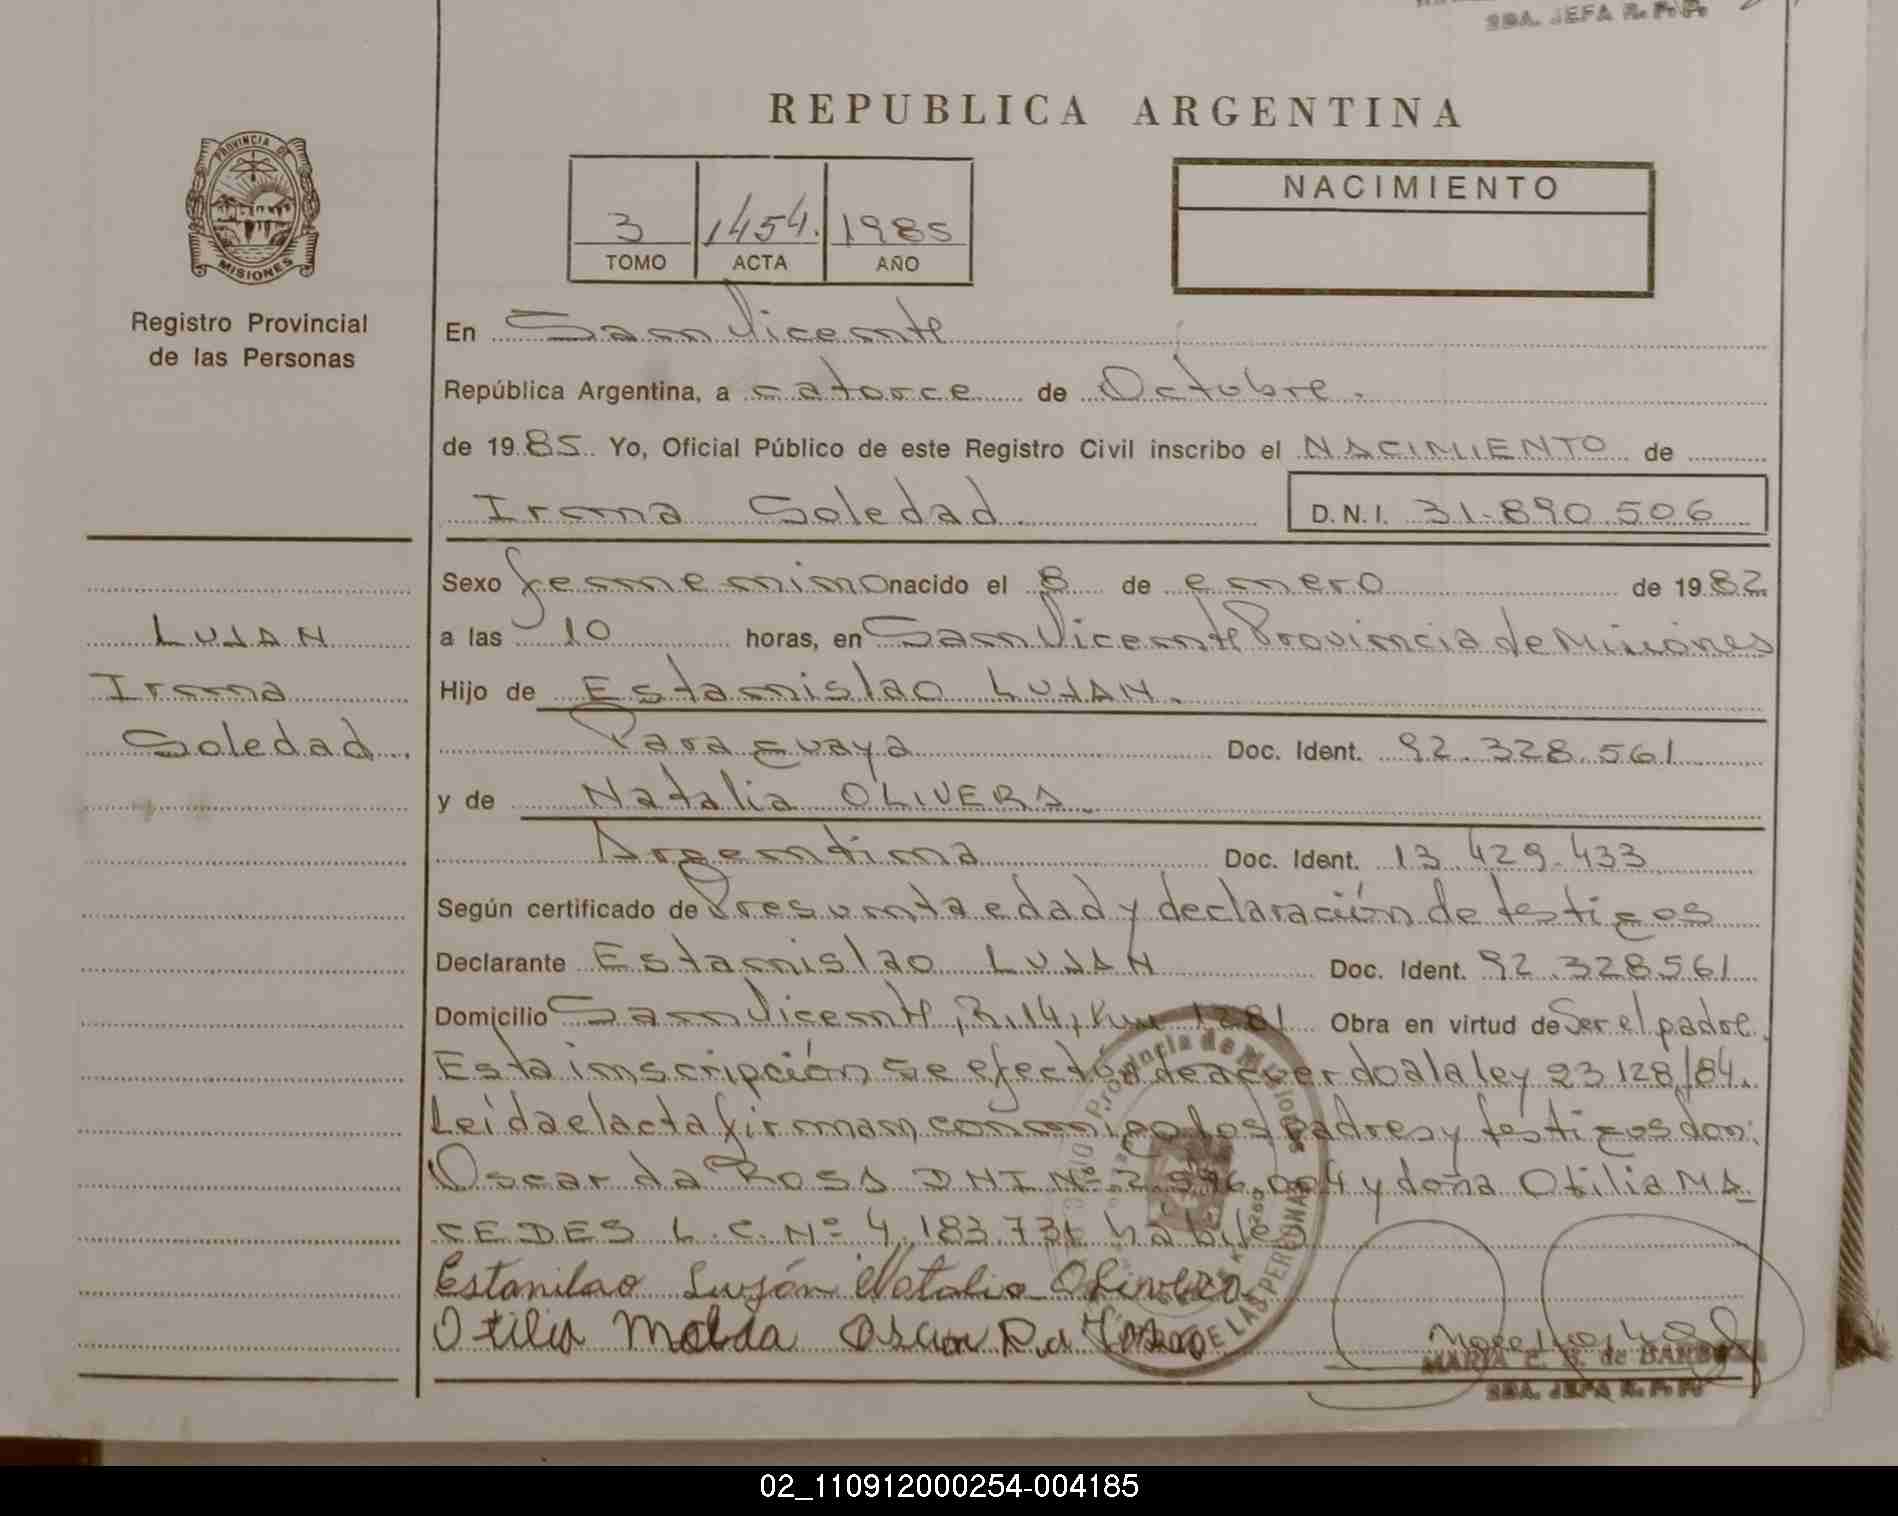 SBA. JEFA R. P. P.
REPUBLICA ARGENTINA
PROVINCIA DE
MISIONES
Registro Provincial
de las Personas
3 1454. 1985
TOMO ACTA AÑO
NACIMIENTO
En San Vicente
República Argentina, a catorce de Octubre.
de 1985. Yo, Oficial Público de este Registro Civil inscribo el NACIMIENTO de
Irma Soledad D.N.I. 31.890.506
Sexo femenino nacido el 8 de enero de 1982
LUJAN
a las 10 horas, en San Vicente Provincia de Misiones
Irma
Hijo de Estanislao LUJAN.
Soledad.
Paraguaya Doc. Ident. 92.328.561
y de Natalia OLIVERA.
Argentina Doc. Ident. 13.429.433
Según certificado de Presunta edad y declaración de testigos
Declarante Estanislao LUJAN Doc. Ident. 92.328561
Domicilio San Vicente, R.14, Km 1281 Obra en virtud de Ser el padre.
Esta inscripción se efectúa de acuerdo a la ley 23.128/84.
Leída el acta firman conmigo los padres y testigos don:
Oscar da ROSA DNI Nº 2.996.004 y doña Otilia MA
CEDES L.C. Nº 4.183.731 hábiles
Estanilao Luján Natalia Olivera
Otilia Oscar Da Rosa
MARIA C. de
SBA. JEFA R. P. P.
Provincia de Misiones
DE LAS PERSONAS
02_110912000254-004185